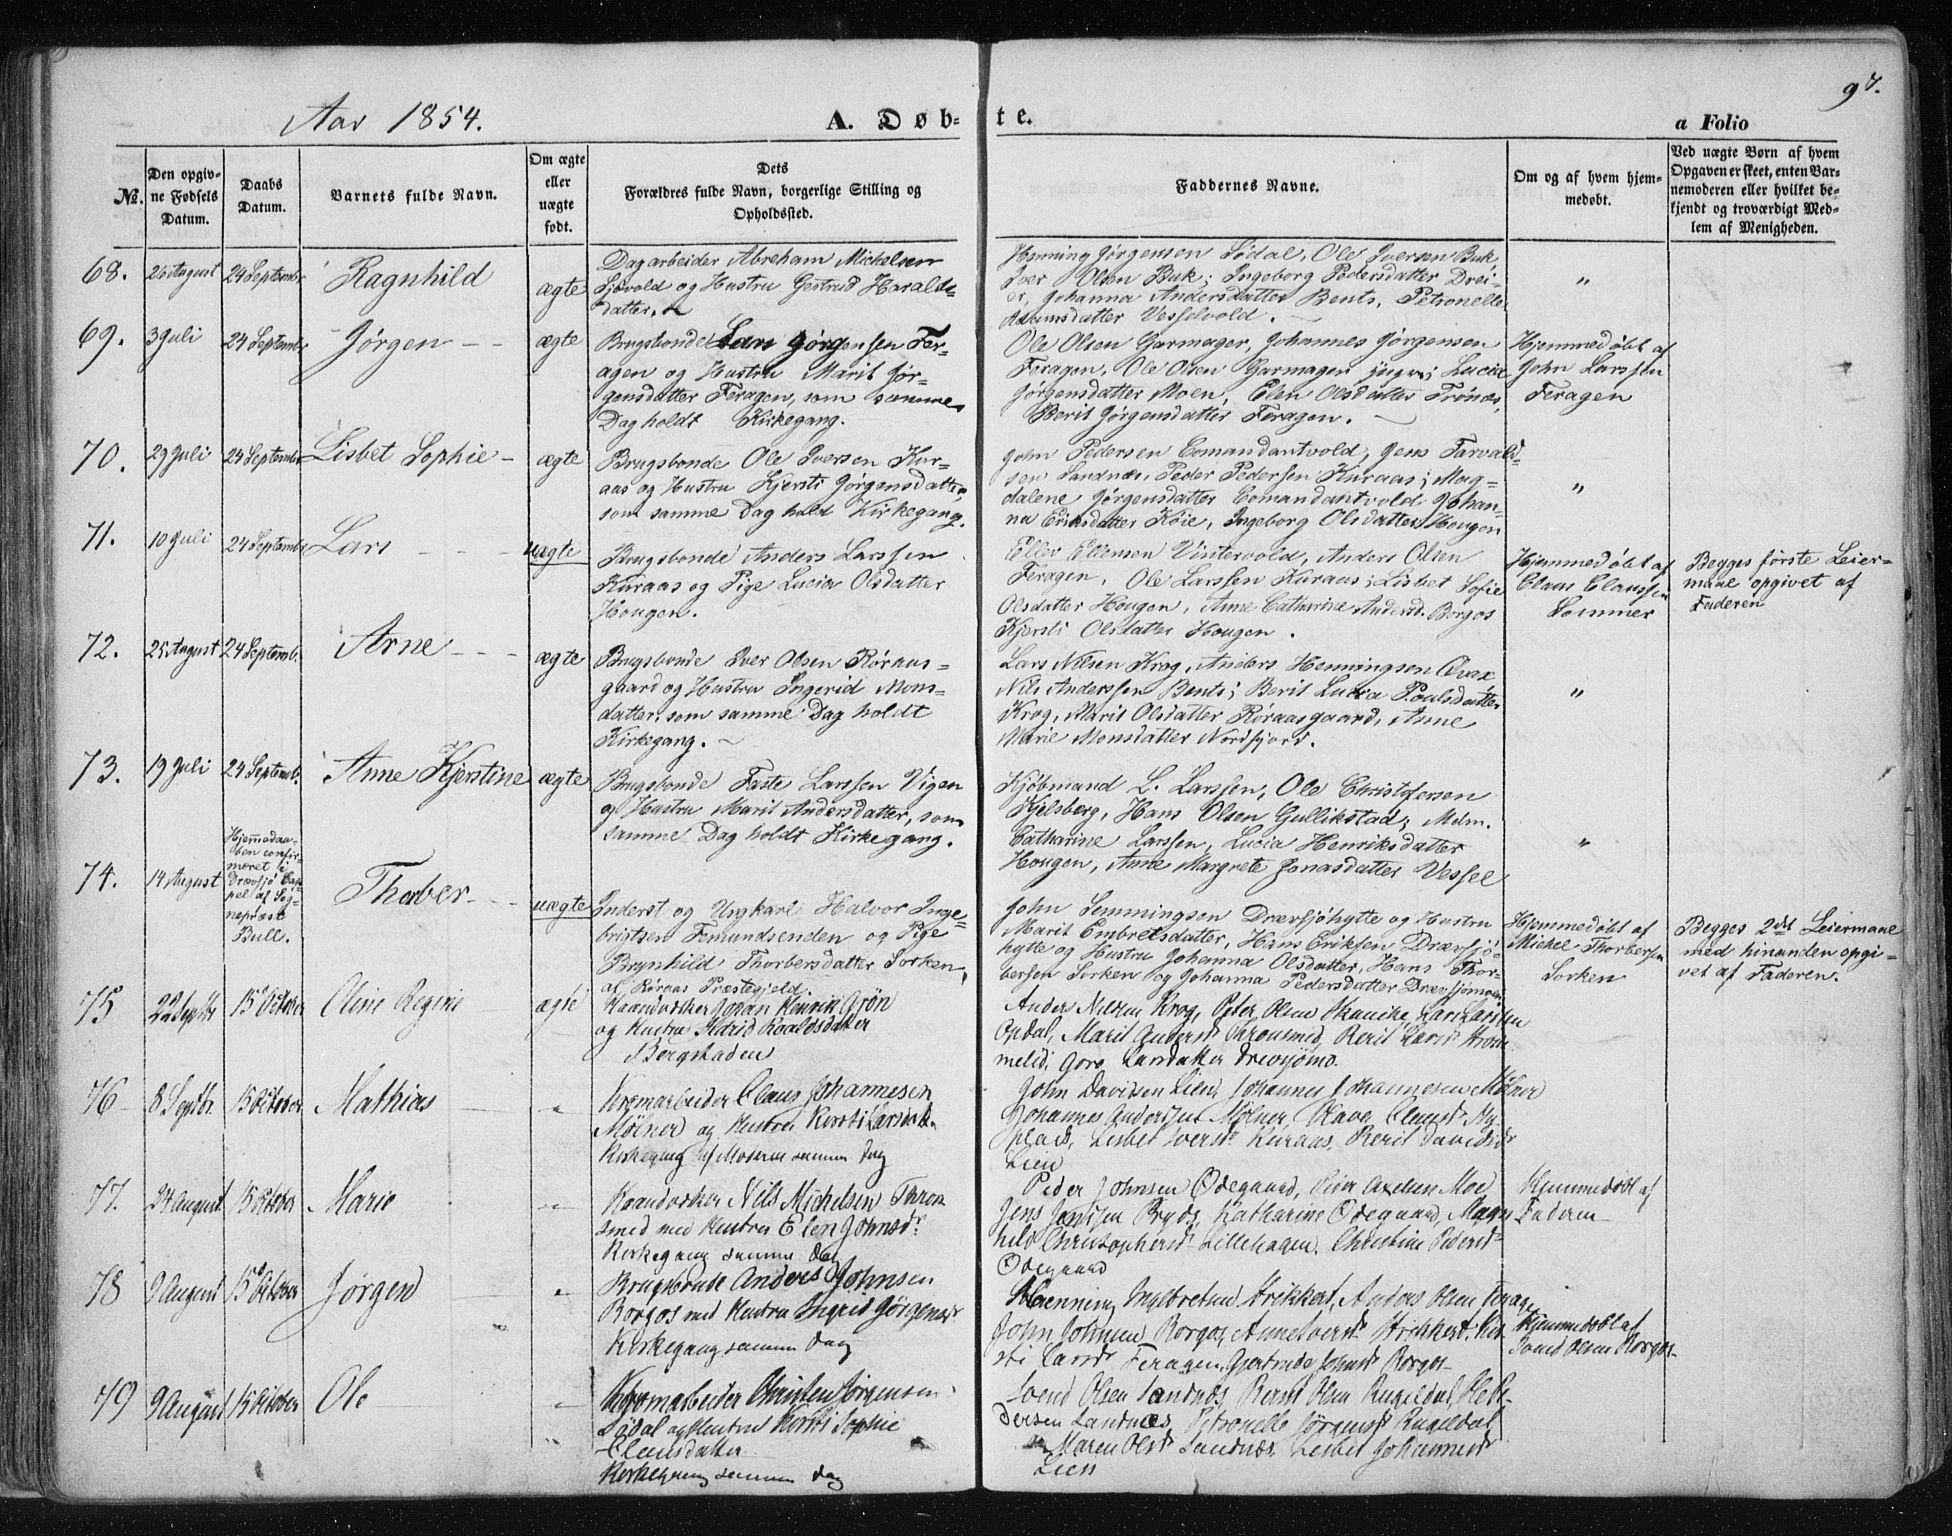 97.
Aar 1854.
A. Døb-
te.
a Folio
№.
Den opgiv-
ne Fødsels
Datum.
Daabs
Datum.
Barnets fulde Navn.
Om ægte
eller
uægte
født.
Dets
Forældres fulde Navn, borgerlige Stilling og
Opholdssted.
Faddernes Navne.
Om og af hvem hjem-
medøbt.
Ved uægte Børn af hvem
Opgaven er skeet, enten Bar-
nemoderen eller hvilket be-
kjendt og troværdigt Med-
lem af Menigheden.
68.
26 August
24 September
Ragnhild
ægte
Dagarbeider Abraham Michelsen
og Hustru Gertrud Haralds-
datter.
Henning Jørgensen Sødal, Ole Iversen Buk
Iver Olsen Buk; Ingeborg Pedersdatter Drei-
er, Johanna Andersdatter Bents, Petronelle
Vesselvold.
"
69.
3 Juli
24 Septembr
Jørgen
ægte
Brugsbonde Lars Jørgensen Fer-
agen og Hustru Marit Jør-
gensdatter Feragen, som samme
Dag holdt Kirkegang.
Ole Olsen Garmager, Johannes Jørgensen
Feragen, Ole Olsen Garmagen jngr.; Lucia
Jørgensdatter Moen, Elen Olsdatter Trønæs,
Berit Jørgensdatter Feragen.
Hjemmedøbt af
John Larssen
Feragen
70.
29 Juli
24 Septembr
Lisbet Sophie
ægte
Brugsbonde Ole Iversen Kur-
aas og Hustru Kjersti Jørgensdatter,
som samme Dag hold Kirkegang.
John Pedersen Comandantvold, Jens Tarvald-
sen Sandnæs, Peder Pedersen Kuraas; Mag-
dalene Jørgensdatter Comandantvold Johan-
na Eriksdatter Køie, Ingeborg Olsdatter Hougen
"
71.
10 Juli
24 Septembr
Lars
uægte
Brugsbonde Anders Larssen
Kuraas og Pige Lucia Olsdatter
Hougen.
Eller Ellensen Vintervold, Anders Olsen
Feragen, Ole Larssen Kuraas; Lisbet Sofie
Olsdatter Hougen, Anne Catharine Andersd. Borgos
Kjersti Olsdatter Hougen.
Hjemmedøbt af
Claus Claussen
Sommer
Begges første Leier-
maal opgivet af
Faderen
72.
25 August
24 Septemb.
Arne
ægte
Brugsbonde Iver Olsen Røraas-
gaard og Hustru Ingerid Mons-
datter, som samme Dag holdt
Kirkegang.
Lars Nilsen Krog, Anders Henningsen
Nils Anderssen Bents; Berit Lucia Poulsdatter
Krog, Marit Olsdatter Røraasgaard, Anne
Marie Monsdatter Nordfjord.
"
73.
19 Juli
24 Septemb.
Anne Kjerstine
ægte
Brugsbonde Faste Larssen Vigen
og Hustru Marit Andersdatter, som
samme Dag holdt Kirkegang.
Kjöbmand L. Larssen, Ole Christofersen
Kjelsberg, Hans Olsen Gullikstad; Mdm.
Catharine Larssen, Lucia Henriksdatter
Hougen, Anne Margrete Jonasdatter Vessel
"
74.
14 August
Hjemmedaa-
ben confir-
meret i
Drevsjø Cap-
pel af Sog-
nepræst
Bull.
Thorber
uægte
Inderst og Ungkarl Halvor Inge-
brigtsen Fæmundsenden og Pige
Brynhild Thorbersdatter Sorken,
af Røraas Præstegjeld.
John Semmingsen Drævsjöhytte og Hustru
Marit Embretsdatter, Hans Eriksen Drævsjö-
hytte og Hustru Johanna Olsdatter, Hans Thor-
bersen Sorken og Johanna Pedersdatter Drævsjömoen
Hjemmedøbt af
Mickel Thorbersen
Sorken
Begges 2det Leiermaal
med hinanden opgi-
vet af Faderen.
75
22 Septbr
15 October
Oline Regine
ægte
Haandverker Johan Henrik Grön
og Hustru Roaldsdatter
Bergstaden
Anders Nilsen Krog, Peter Olsen Lars Larsen
Opdal, Marit Andersd Thronsmed, Berit Larsd
Goro Larsdatter Drevsjömo.
76
8 Septbr.
15 October
Mathias
"
Claus Johannesen
Mölner og Hustru Kersti Larsdatr.
Kirkegang af Moderen samme Dag
John Davidsen Lien, Johannes Johannesen Mölner
Johannes Andersen Mölner, Clausdr Ny-
plads, Lisbet Iversdr Kuraas, Berit Davidsdr
Lien
77.
24 August
15 October
Marie
"
Haandverker Nils Michelsen Thron
smed med Hustru Elen Johnsdr
Kirkegang samme Dag
Peder Johnsen Ödegaard, Axelsen Moe
Jens Jensen Bryds, Katharine Ödegaard, Magn-
hild Christophersdr Lillehagen, Christine Pedersdr
Ödegaard
Hjemmedöbt af
Faderen
78
9 August
15 October
Jörgen
"
Brugsbonde Anders Johnsen
Borgos med Hustru Ingrid Jörgensdr
Kirkegang samme Dag
Henning Ingebretsen Strikkert, Anders Olsen Ferage
John Johnsen Borgos, Anne Iversdr Strikkert, Ker-
sti Larsdr Feragen, Gjertrude Johnsdr Borgos
Hjemmedöbt af
Svend Olsen Borgos
79
9 August
15 October
Ole
"
Christen Jörgensen
Södal og Hustru Kersti Sophie
Clausdatter
Kirkegang samme Dag
Svend Olsen Sandnæs, Bernt Olsen Rugeldal, Ole Pe-
dersen Sandnæs, Petronelle Jörgensdr Rugeldal
Maren Olsdr Sandnæs Lisbet Johannesdr
Lien